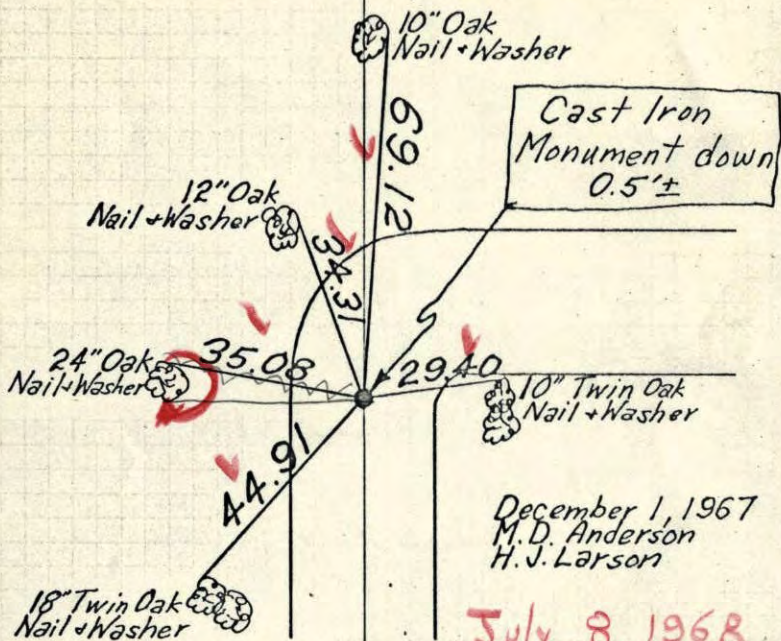 10" Oak
Nail + Washer
Cast Iron
Monument down
0.5'±
69.12
12" Oak
Nail + Washer
34.31
24" Oak
Nail + Washer
35.08
29.40
10" Twin Oak
Nail + Washer
44.91
December 1, 1967
M.D. Anderson
H.J. Larson
18" Twin Oak
Nail + Washer
July 8 1968